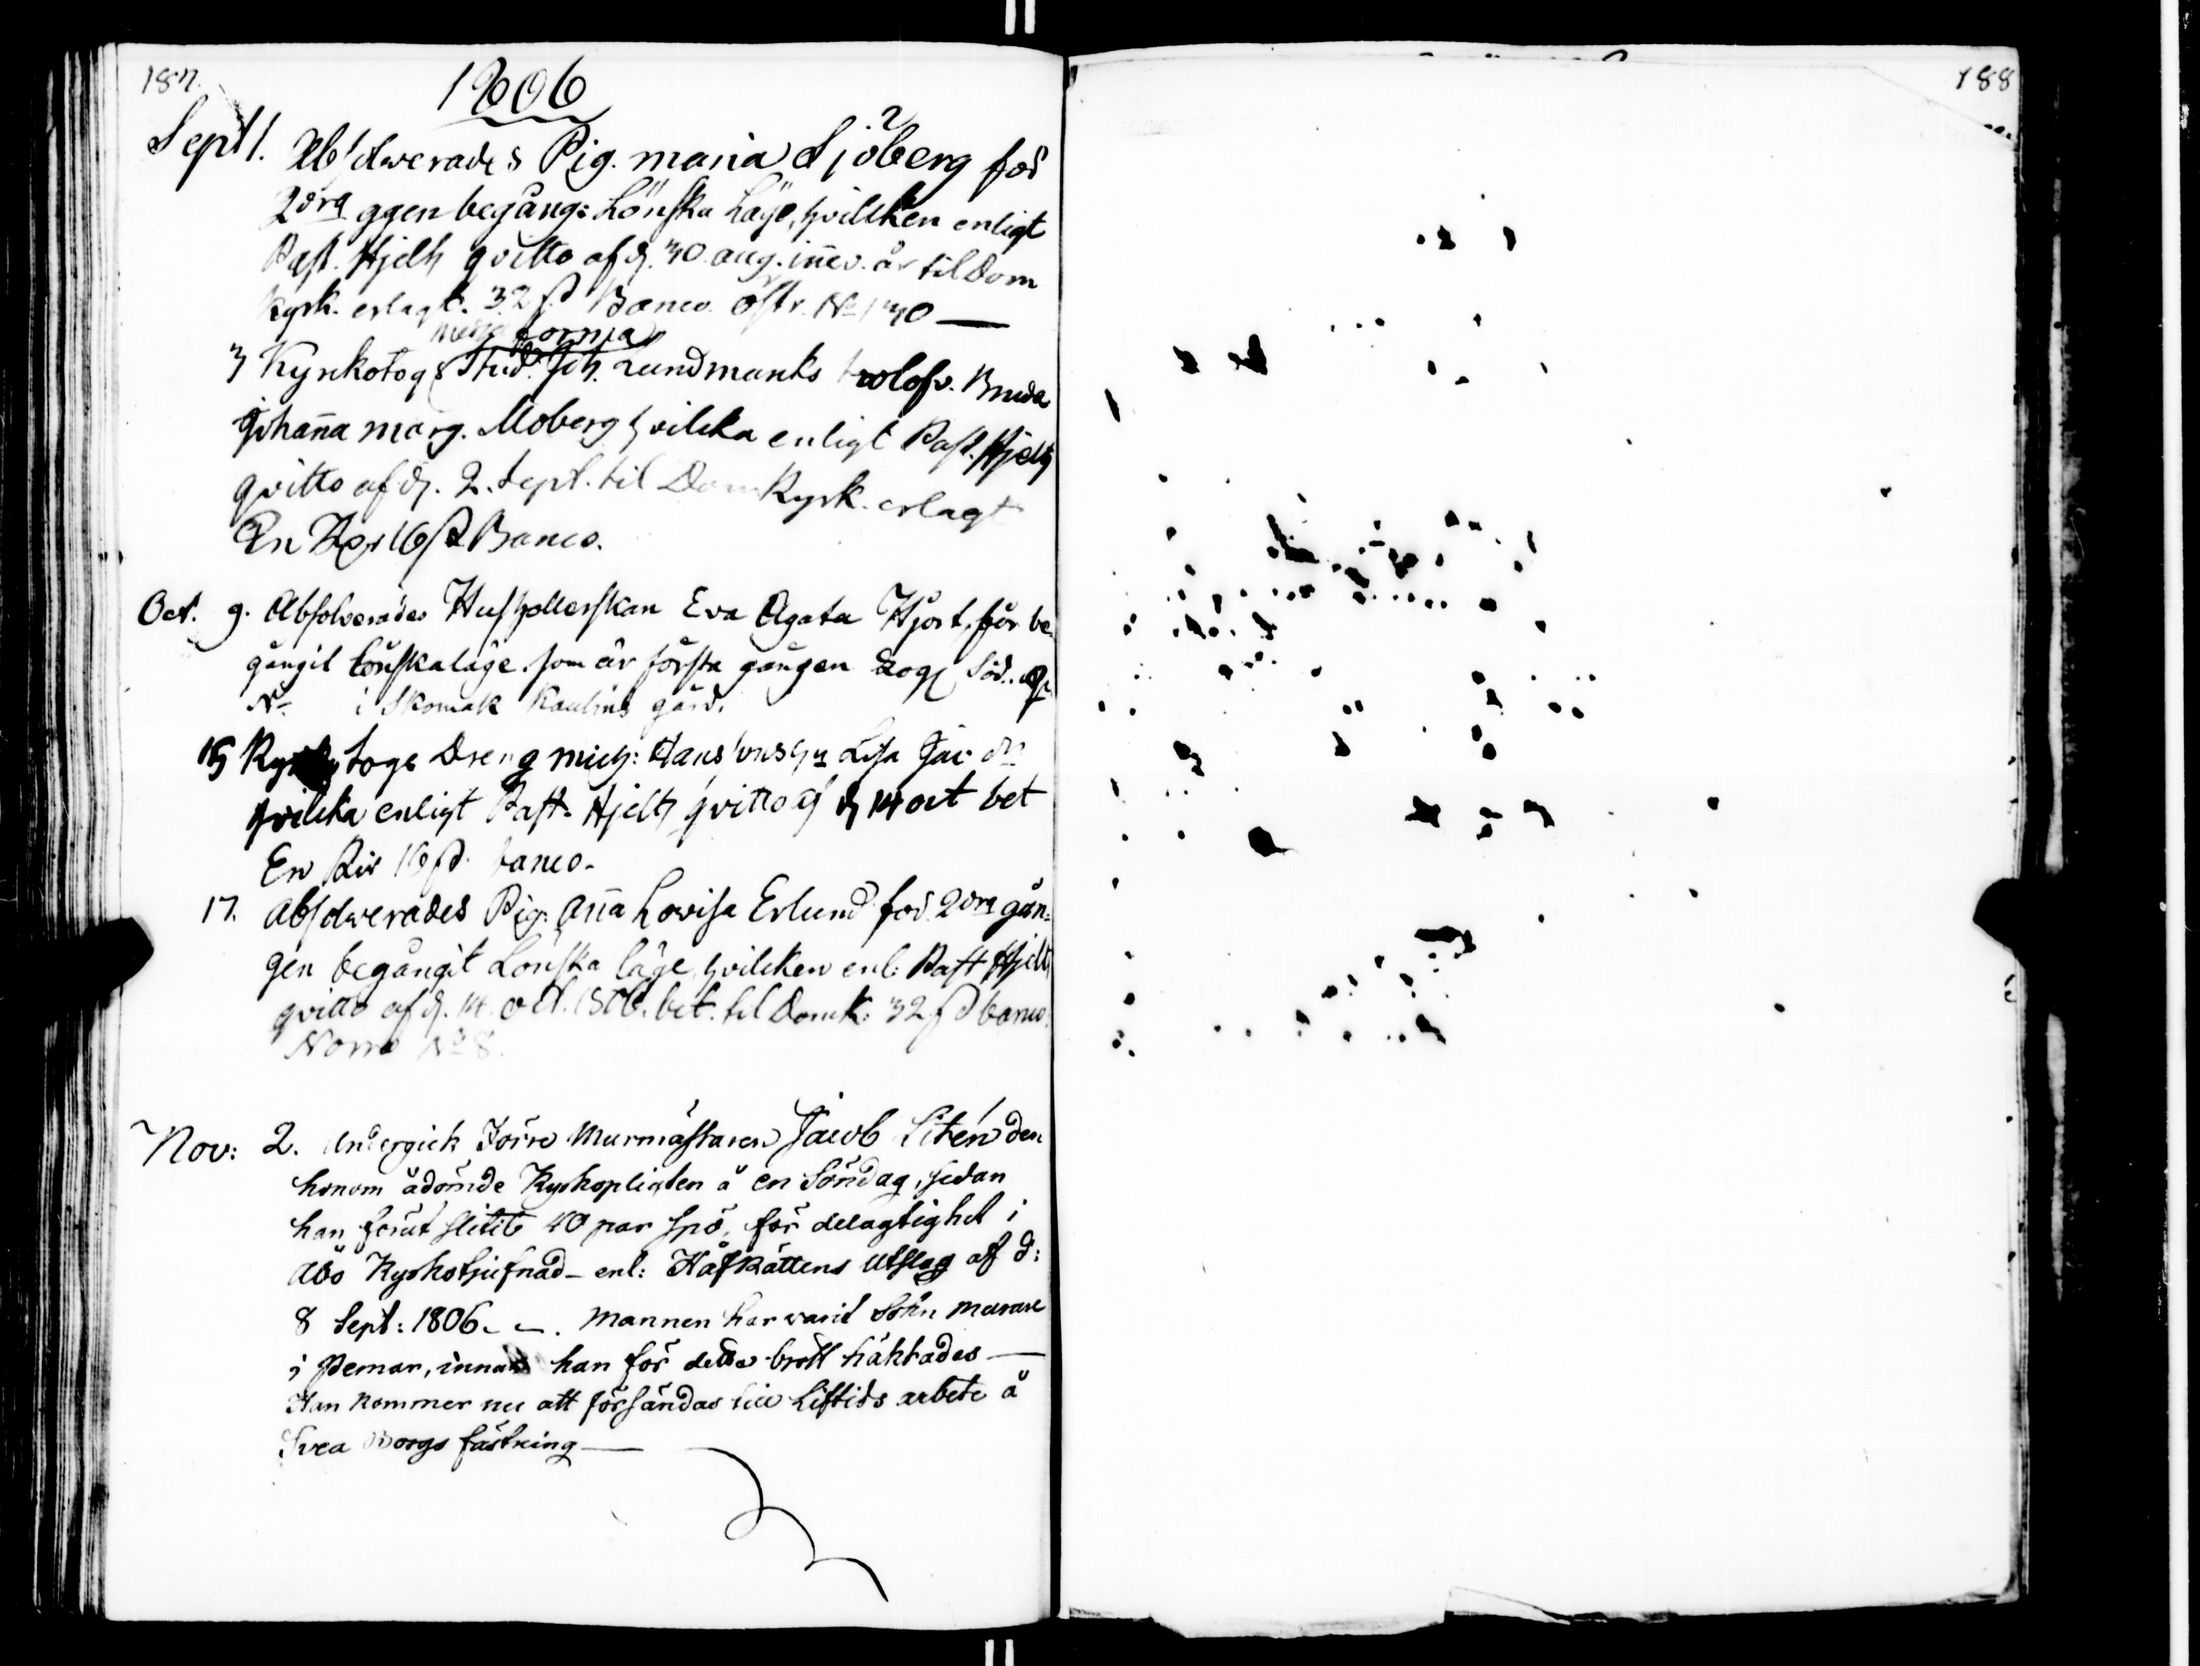 187.
1806
Sept 1. Absolverades Pig. maria Sjöberg för
2dra ggen begång: Lönska Läge, hvilcken enligt
Past. Hjelth qvitto af d. 30. aug. inev. år til Dom
kyrk. erlagt. 32 ß Banco. östr. No 130 —
forma
3 Kyrkotogs Stud. Joh. Lundmarks trolofv. Bruda
Johanna marg. Moberg hvilcka enligt Past. Hjelth
qvitto af d. 2. Sept. til Dom Kyrk. erlagt
En Rdr 16 ß Banco.
Oct. 9. Absolverades Hushollerskan Eva Agata Hjort, för be-
gångit Lönskaläge som är första gången Söd.
No i Skomak Kaulins gård.
15 Kyrkotogs Dreng mich: Hanssons Lisa Jac. dr
hvilcka enligt Past. Hjelth qvitto af d 14 oct bet
En Rdr 16 ß. banco.
17. absolverades Pig. Anna Lovisa Erlund för 2dra gån-
gen begångit Lönska läge, hvilcken enl: Past Hjelth
qvitto af d. 14. oct. 1806. bet. til Domk: 32 ß banco.
Norra No 8.
Nov: 2. Undergick Förre Murmästaren Jacob Litén den
honom ådömde Kyrkoplichten å en Söndag, sedan
han förut slitit 40 par spö, för delagtighet i
Åbo Kyrkotjufnad – enl: HåfRättens Utslag af d:
8 Sept: 1806. –. Mannen har varit Sokn Murare
i Pemar, innan han för detta brott häktades —
Han kommer nu att försändas till Liftids arbete å
Svea Borgs fästning —
188